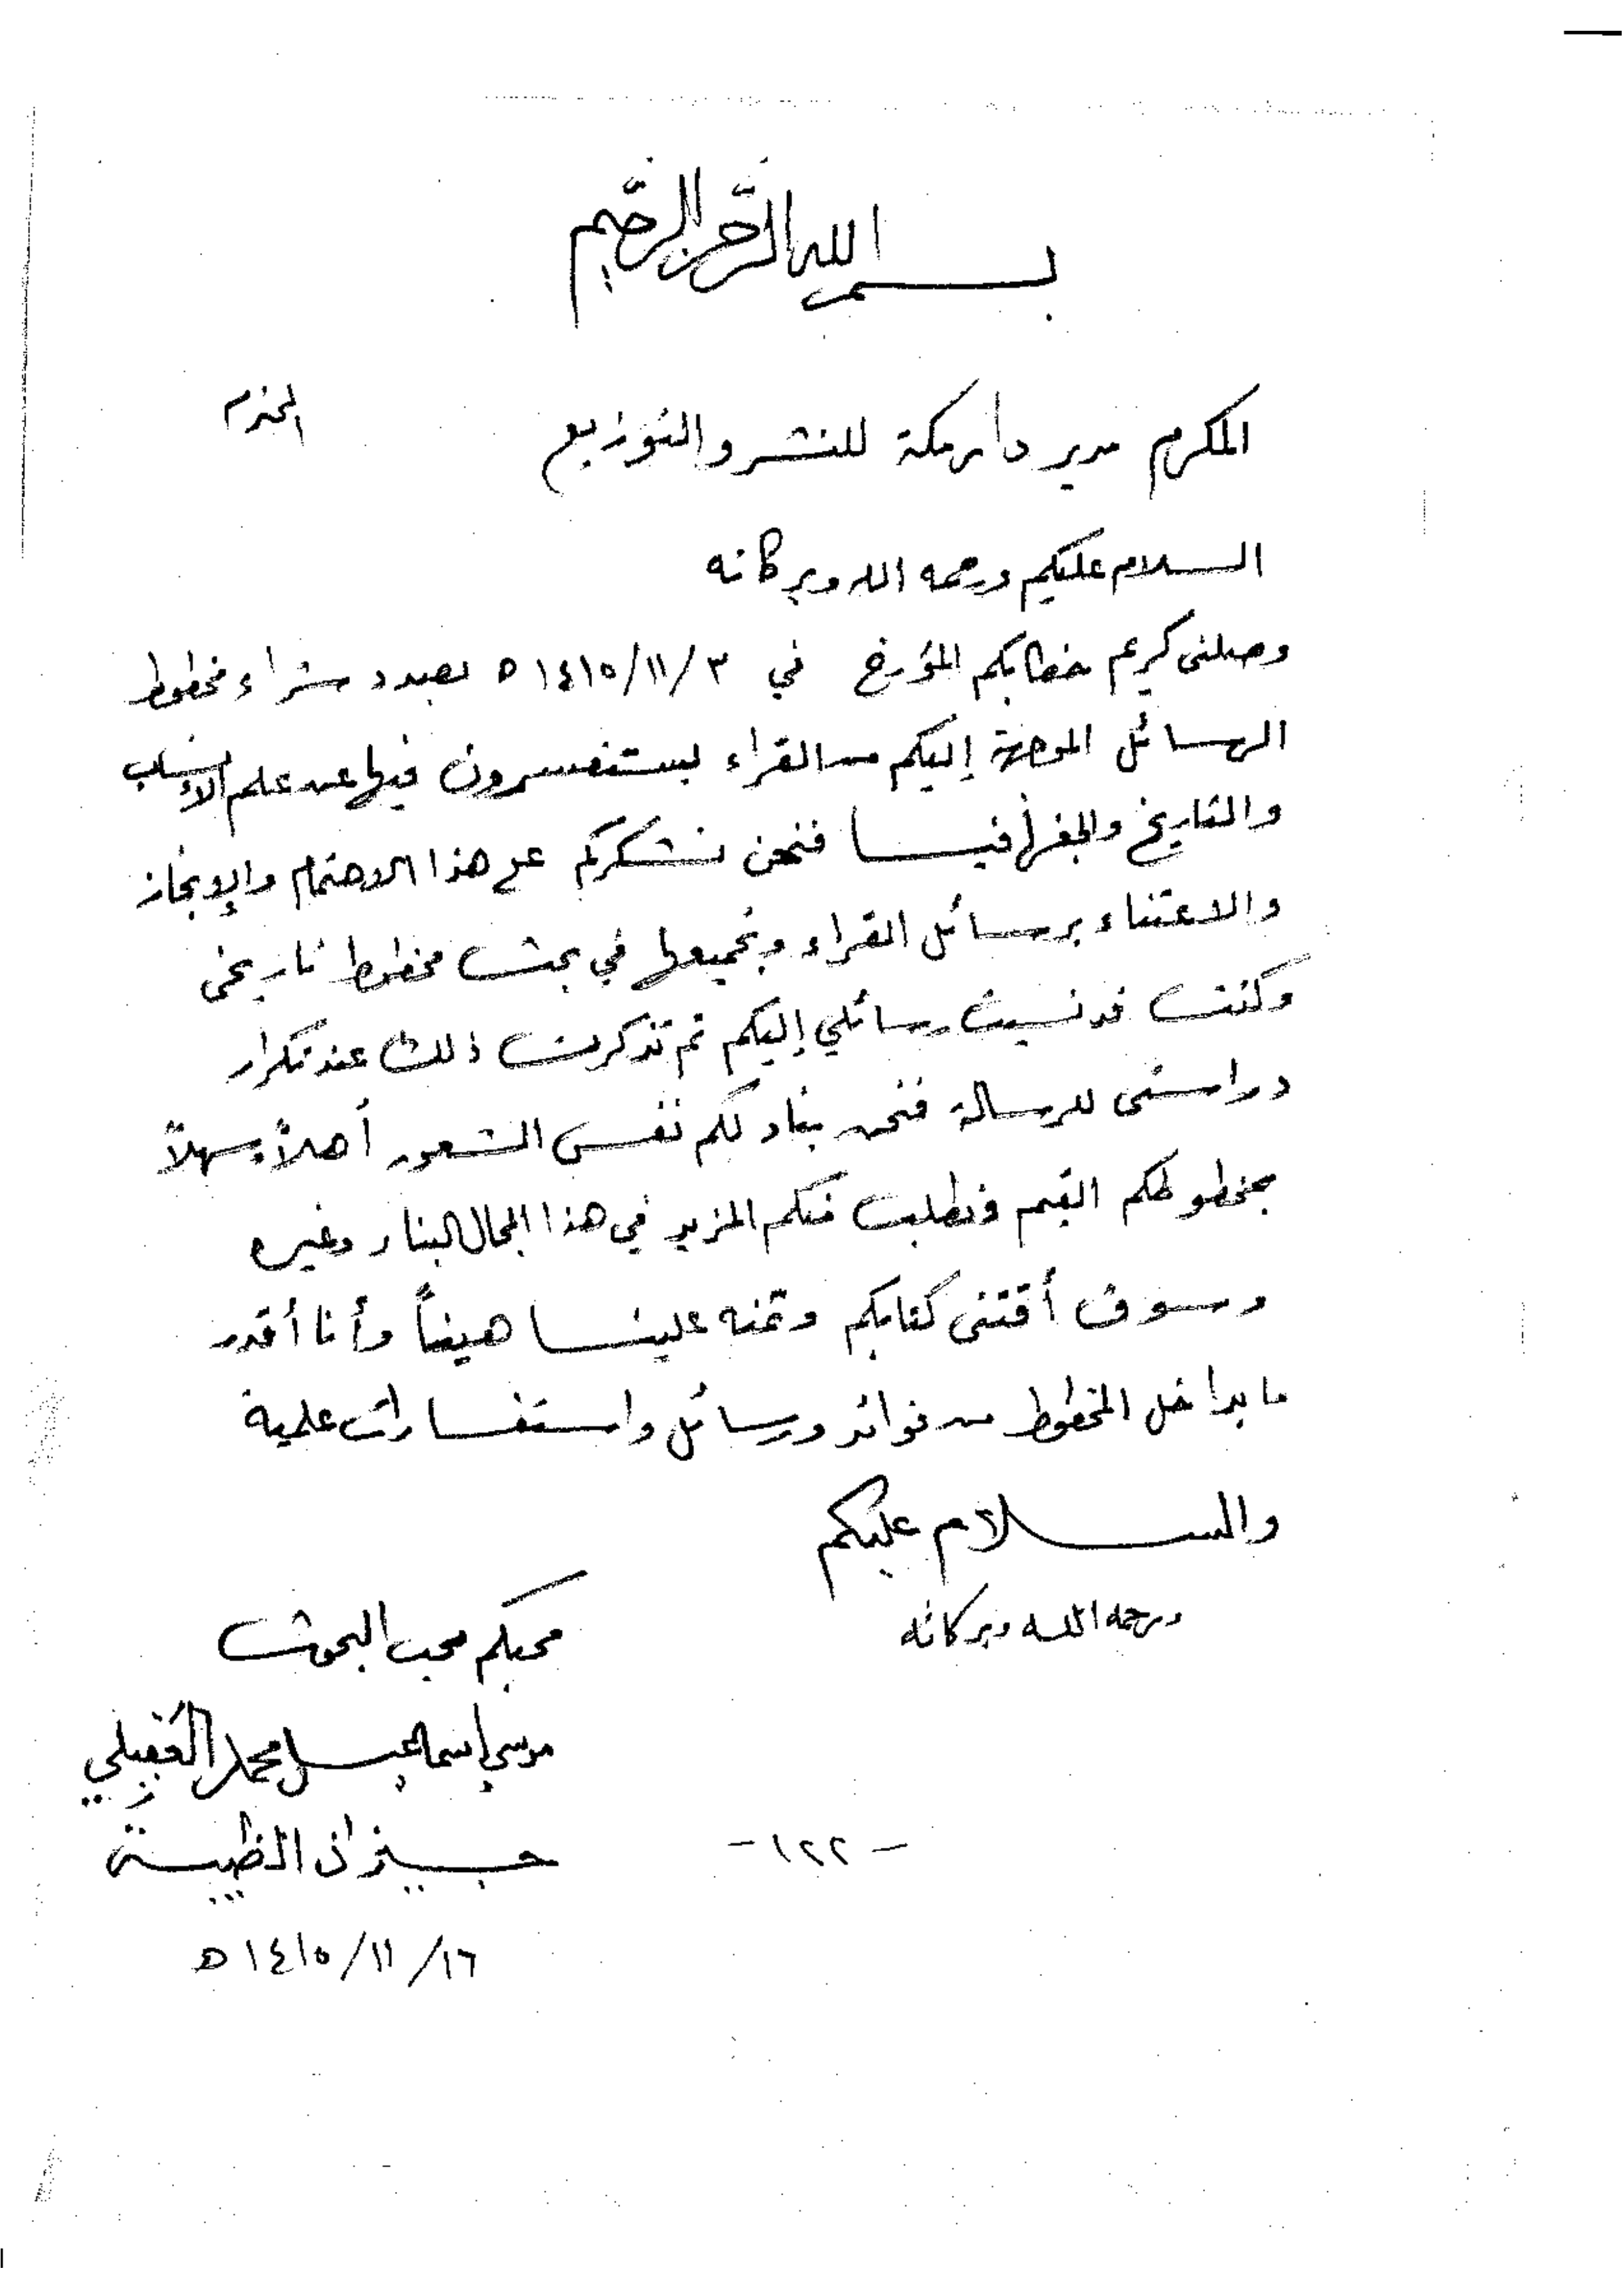 بسم الله الرحمن الرحيم
المكرم مدير دار مكة للنشر والتوزيع المحترم
السلام عليكم ورحمه الله وبركاته
وصلني كريم خطابكم المؤرخ في ٣/١١/١٤١٥ه بصدد شراء مخطوط
الرسائل الموجهة إليكم من القراء يستفسرون فيها عن علم الأنساب
والتاريخ والجغرافيا فنحن نشكركم على هذا الاهتمام والإنجاز
والاعتناء برسائل القراء وتجميعها في بحث مخطوط تاريخي
وكنت قد نسيت رسائلي إليكم ثم تذكرت ذلك عند تكرار
دراستي للرسالة فنحن نبادلكم نفس الشعور أهلاً وسهلاً
بمخطوطكم القيم ونطلب منكم المزيد في هذا المجال البناء وغيره
وسوف أقتني كتابكم وثمنه علينا هيناً وأنا أقدر
ما بداخل المخطوط من فوائد ورسائل واستفسارات علمية
والسلام عليكم
ورحمه الله وبركاته
محبكم محب البحوث
موسى إسماعيل محمد العقيلي
جيزان الظبية
-١٢٢-
١٦/١١/١٤١٥ه